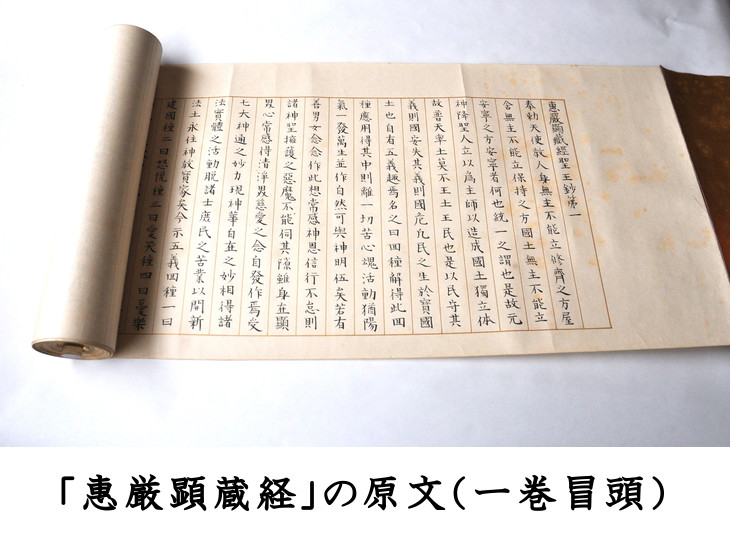 惠嚴顯藏經聖王鈔第一
奉勅天使教人身無主不能立修齊之方屋
舍無主不能立保持之方國土無主不能立
安寧之方安寧者何也統一之謂也是故元
神降聖人立以為主師以造成國土獨立体
故普天率土莫不王土王民也是以民守其
義則國安失其義則國危凡民之生於寶國
土也自有五義趣焉名之曰四種解得此四
種應用得其中則離一切苦心塊活動猶陽
氣一發萬生並作自然可與神明伍矣若有
善男女念念作此想常感神恩信行不怠則
諸神聖擁護之惡魔不能伺其隙雖身在顯
界心常感得清淨界慈愛之念自發作焉受
七大神通之妙力現神華自直之妙相得諸
法實體之活動脫諸士庶民之苦業以開新
法土永住神故寶家矣今示五義四種一曰
建國種二曰怒悅種三曰愛天種四曰憂樂
「惠厳顕蔵経」の原文(一巻冒頭)